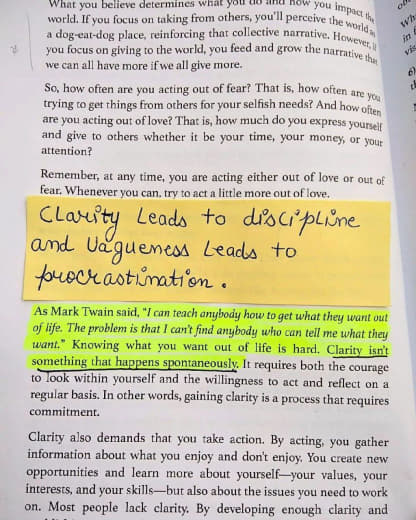 What you believe determines what you do and how you impact the
world. If you focus on taking from others, you'll perceive the world as
a dog-eat-dog place, reinforcing that collective narrative. However, if
you focus on giving to the world, you feed and grow the narrative that
we can all have more if we all give more.
So, how often are you acting out of fear? That is, how often are you
trying to get things from others for your selfish needs? And how often
are you acting out of love? That is, how much do you express yourself
and give to others whether it be your time, your money, or your
attention?
Remember, at any time, you are acting either out of love or out of
fear. Whenever you can, try to act a little more out of love.
Clarity Leads to discipline
and Vagueness Leads to
procrastination.
As Mark Twain said, "I can teach anybody how to get what they want out
of life. The problem is that I can't find anybody who can tell me what they
want." Knowing what you want out of life is hard. Clarity isn't
something that happens spontaneously. It requires both the courage
to look within yourself and the willingness to act and reflect on a
regular basis. In other words, gaining clarity is a process that requires
commitment.
Clarity also demands that you take action. By acting, you gather
information about what you enjoy and don't enjoy. You create new
opportunities and learn more about yourself—your values, your
interests, and your skills—but also about the issues you need to work
on. Most people lack clarity. By developing enough clarity and